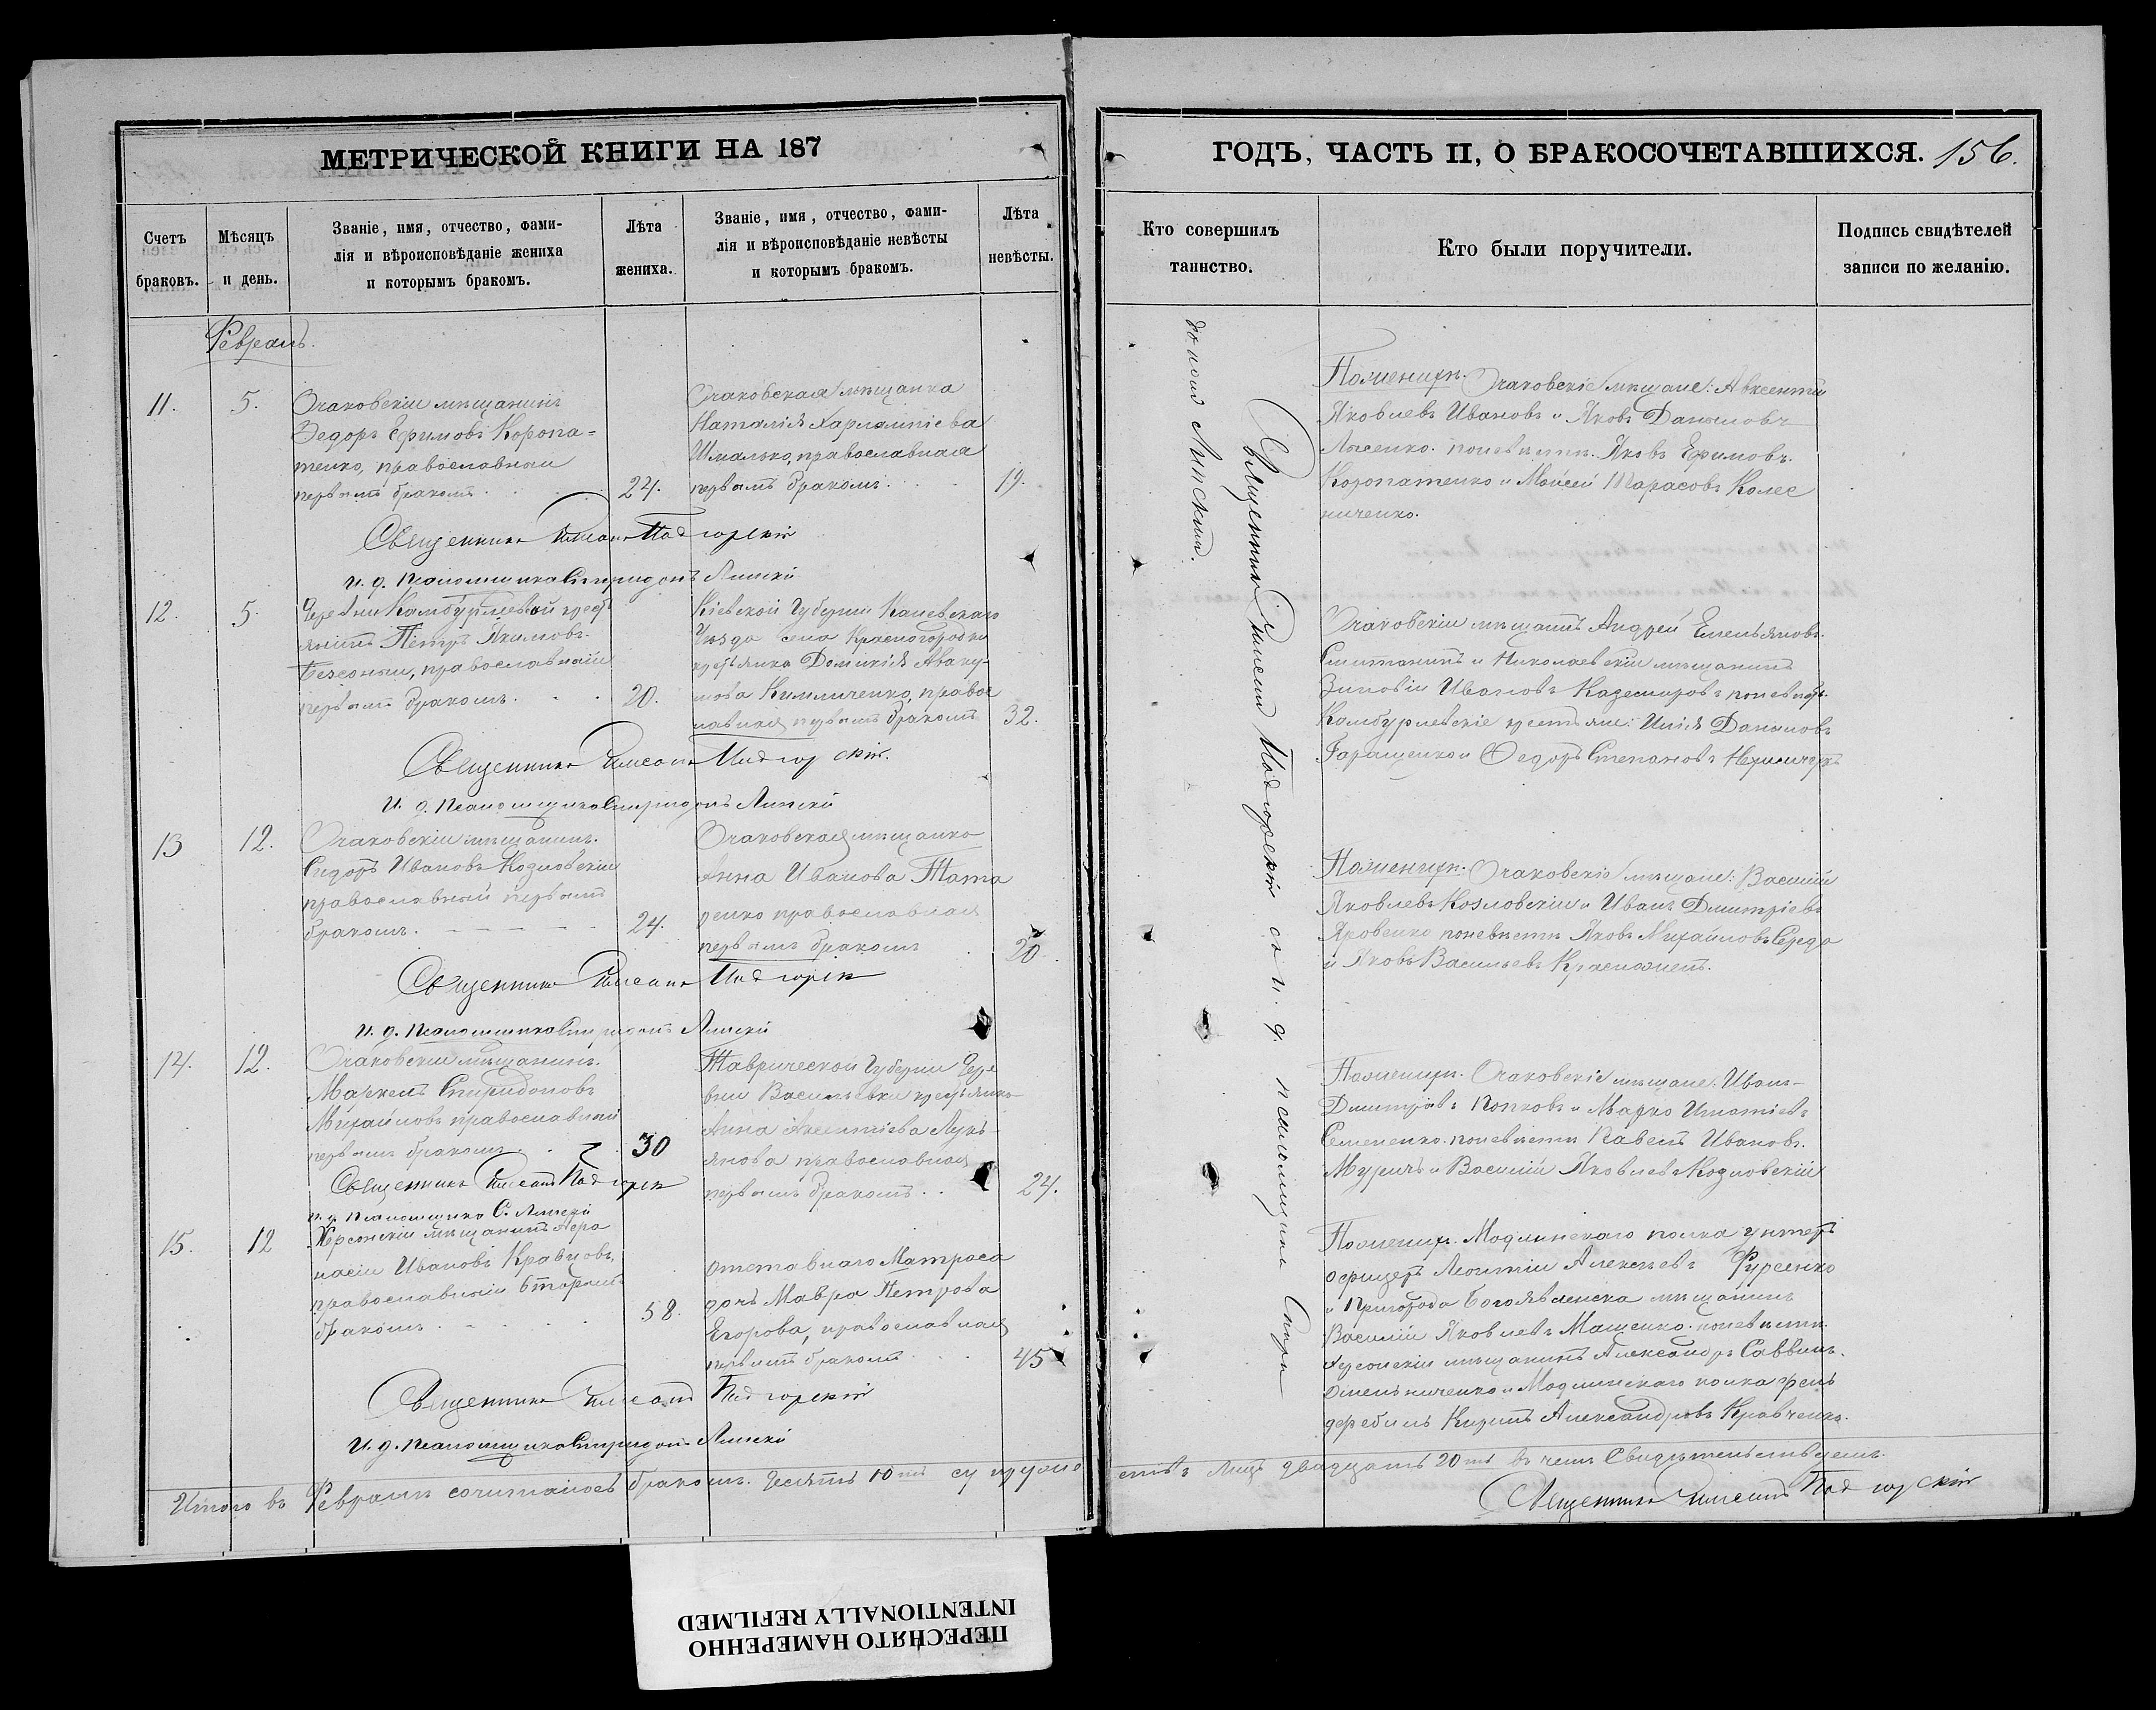 МЕТРИЧЕСКОЙ КНИГИ НА 187
Счетъ браковъ.
Мѣсяцъ и день.
Званіе, имя, отчество, фами-
лія и вѣроисповѣданіе жениха
и которымъ бракомъ.
Лѣта жениха.
Званіе, имя, отчество, фами-
лія и вѣроисповѣданіе невѣсты
и которымъ бракомъ.
Лѣта невѣсты.
Февраль.
11.
5.
Очаковскій мѣщанинъ
Ѳедоръ Ефимовъ Коропа=
тенко, православный
первымъ бракомъ.
24.
Очаковская мѣщанка
Наталія Харлампіева
Шмалько, православная
первымъ бракомъ.
19.
Священникъ Подгорскій
и. д. псаломщика Спиридонъ Линскій
12.
5.
Деревни Камбурлиевой крест
янинъ Пётръ Якимовъ
православный
первымъ бракомъ.
20.
Кіевской Губерніи Каневскаго
Уѣзда села Красногородки
крестьянка Домникія Аваку-
мова правос
лавная первымъ бракомъ
32.
Священникъ Подгорскій.
и. д. псаломщика Спиридонъ Линскій
13
12.
Очаковскій мѣщанинъ.
Сидоръ Ивановъ Козловскій
православный первымъ
бракомъ.
24.
Очаковская мѣщанка
Анна Иванова Тата
ренко православная
первымъ бракомъ
20.
Священникъ Подгорск
и. д. псаломщика Спиридонъ Линскій
14.
12.
Очаковскій мѣщанинъ.
Маркелъ Спиридоновъ
Михайловъ православный
первымъ бракомъ.
30
Таврической Губерніи Дере
вни Васильевки крестьянка
Анна Авксентіева Лукь-
янова православная
первымъ бракомъ.
24.
Священникъ Подгорск
и. д. псаломщика С. Линскій
15.
12
Херсонскій мѣщанинъ Аѳа
насій Ивановъ Кравцовъ,
православный вторымъ
бракомъ
58.
отставнаго Матроса
дочь Мавра Петрова
Егорова, православная
первымъ бракомъ
45
Священникъ Подгорскій
и. д. псаломщика Спиридонъ Линскій
Итого въ Февралѣ сочиталось бракомъ. десять 10ть супруже
ГОДЪ, ЧАСТЬ II, О БРАКОСОЧЕТАВШИХСЯ. 156.
Кто совершилъ таинство.
Кто были поручители.
Подпись свидѣтелей записи по желанію.
Священникъ Подгорскій съ и. д. псаломщика Спири
дономъ Линскимъ.
По женихѣ. Очаковскіе мѣщане: Авксентій
Яковлевъ Ивановъ и Яковъ Даниловъ
Лысенко. по невѣстѣ. Яковъ Ефимовъ.
Коропатенко и Мойсей Тарасовъ Колес
ниченко.
Очаковскій мѣщанинъ Андрей Емельяновъ.
и Николаевскій мѣщанинъ
Зиновій Ивановъ Казамировъ по невѣстѣ.
Камбурлиевскіе крестьяне: Илія Даниловъ
Геращенко и Федоръ Степановъ
По женихѣ. Очаковскіе мѣщане: Василій
Яковлевъ Козловскій и Иванъ Дмитріевъ
Яровенко по невѣстѣ Яковъ Михайловъ Середа
и Яковъ Васильевъ
По женихѣ. Очаковскіе мѣщане: Иванъ
Дмитріевъ Попковъ и Марко Игнатіевъ
Семененко. по невѣстѣ Павелъ Ивановъ.
и Василій Яковлевъ Козловскій
По женихѣ. Модлинскаго полка унтеръ
офицеръ Леонтій Алексѣевъ Фурсенко
и Пригорода Богоявленска мѣщанинъ
Василій Яковлевъ Мащенко. по невѣстѣ.
Херсонскій мѣщанинъ Александръ Саввинъ.
Омельниченко и Модлинскаго полка фель
дфебель Кирилъ Александровъ Кравченко.
ствъ лицъ двадцать 20ть въ чемъ Свидѣтельствуемъ.
Священникъ Подгорскій
ПЕРЕСНЯТО НАМЕРЕННО
INTENTIONALLY REFILMED